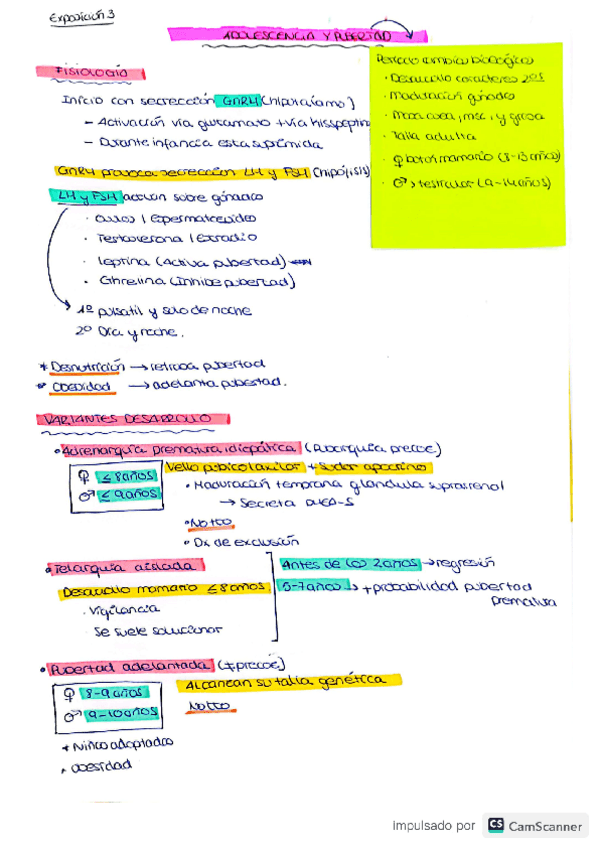 Exposición 3
ADOLESCENCIA Y PUBERTAD
Periodo cambios biológicos
· Desarrollo caracteres 2os
· Maduración gónadas
· Masa osea, msc, y grasa
· Talla adulta
· ♀ botón mamario (8-13 años)
· ♂ > testicular (9-14 años)
FISIOLOGÍA
Inicio con secreción GNRH (hipotálamo)
- Activación vía glutamato + vía kisspeptina
- Durante infancia esta suprimida
GNRH provoca secreción LH y FSH (hipófisis)
LH y FSH actúan sobre gónadas
· Óvulos / Espermatozoides
· Testosterona / Estradiol
· Leptina (Activa pubertad)
· Ghrelina (Inhibe pubertad)
1º pulsatil y solo de noche
2º Día y noche.
* Desnutrición → retrasa pubertad
* Obesidad → adelanta pubertad.
VARIANTES DESARROLLO
· Adrenarquia prematura idiopática (Pubarquia precoz)
♀ ≤ 8 años
♂ ≤ 9 años
Vello púbico/axilar + sudor apocrino
· Maduración temprana glándula suprarrenal
→ Secreta DHEA-S
· No tto
· Dx de exclusión
· Telarquia aislada
Desarrollo mamario ≤ 8 años
· Vigilancia
· Se suele solucionar
Antes de los 2 años → regresión
5-7 años → + probabilidad pubertad
prematura
· Pubertad adelantada (≠ precoz)
♀ 8-9 años
♂ 9-10 años
Alcanzan su talla genética
No tto
* Niños adoptados
* obesidad
Impulsado por CS CamScanner